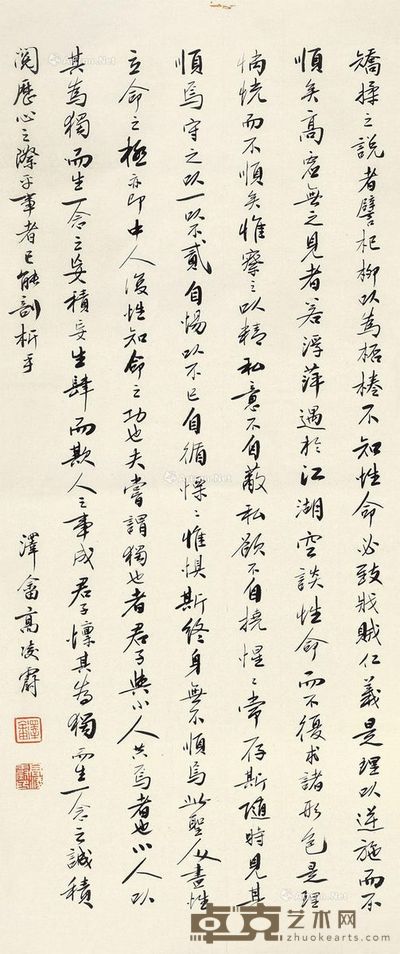 矯揉之說者譬杞柳以為桮棬不知性命必致戕賊仁義是理以逆施而不
順矣高虛無之見者若浮萍遇於江湖空談性命而不復求諸形色是理
惝恍而不順矣惟察之以精私意不自蔽私欲不自撓惺惺常存斯隨時見其
順焉守之以一以不貳自惕以不已自循慄慄惟懼斯終身無不順焉此聖人盡性
立命之極亦即中人復性知命之功也夫嘗謂獨也者君子與小人共焉者也小人以
其為獨而生一念之妄積妄生肆而欺人之事成君子懍其為獨而生一念之誠積
閱歷心之際乎事者已能剖析乎
澤畬高凌霨
澤畬
卓克艺术网
www.zhuokearts.com